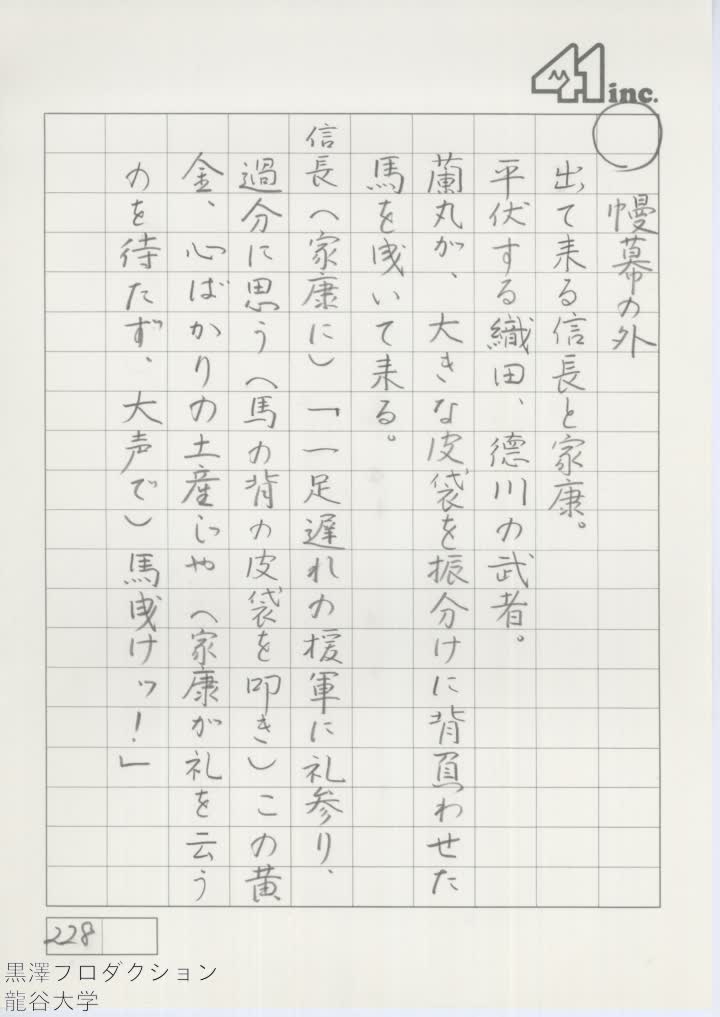 41 inc.
○
幔幕の外
出て来る信長と家康。
平伏する織田、徳川の武者。
蘭丸が、大きな皮袋を振分けに背負わせた
馬を曳いて来る。
信長(家康に)「一足遅れの援軍に礼参り、
過分に思う(馬の背の皮袋を叩き)この黄
金、心ばかりの土産じや(家康が礼を云う
のを待たず、大声で)馬曳けッ!」
228
黒澤プロダクション
龍谷大学